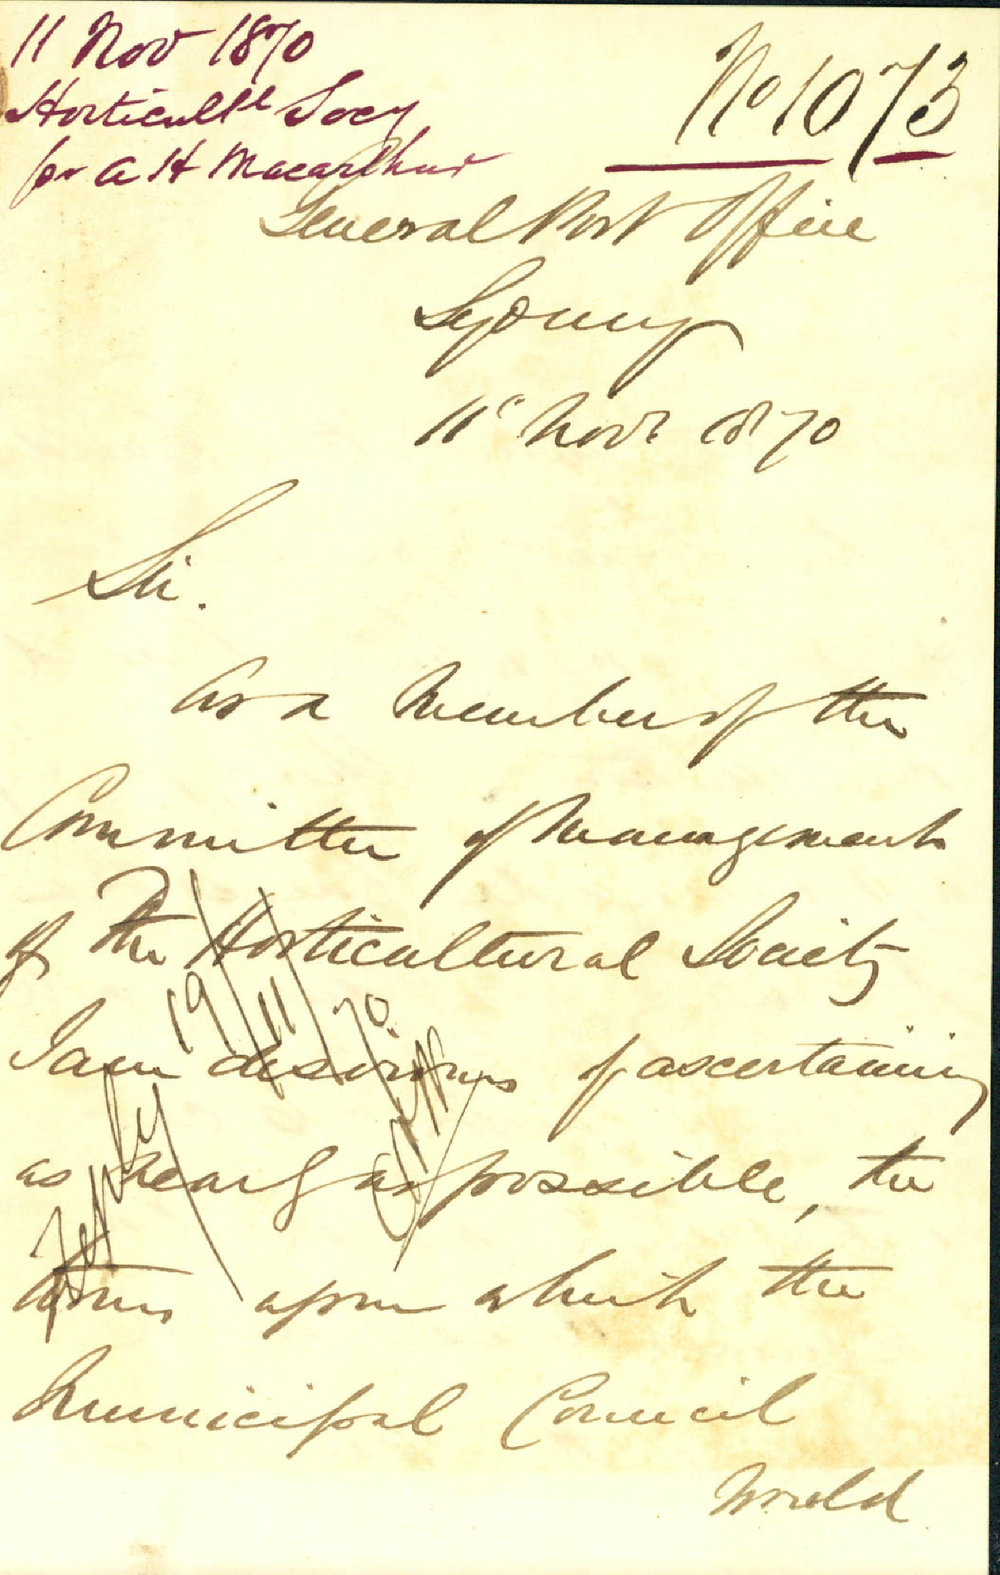 11 Nov 1870
Horticultl Socy
per A H Macarthur
No 1073
General Post Office
Sydney
11th Novr 1870
Sir.
As a Member of the
Committee of Management
of The Horticultural Society
I am desirous of ascertaining
as nearly as possible, the
terms upon which the
Municipal Council
would
Reply 19/11/70